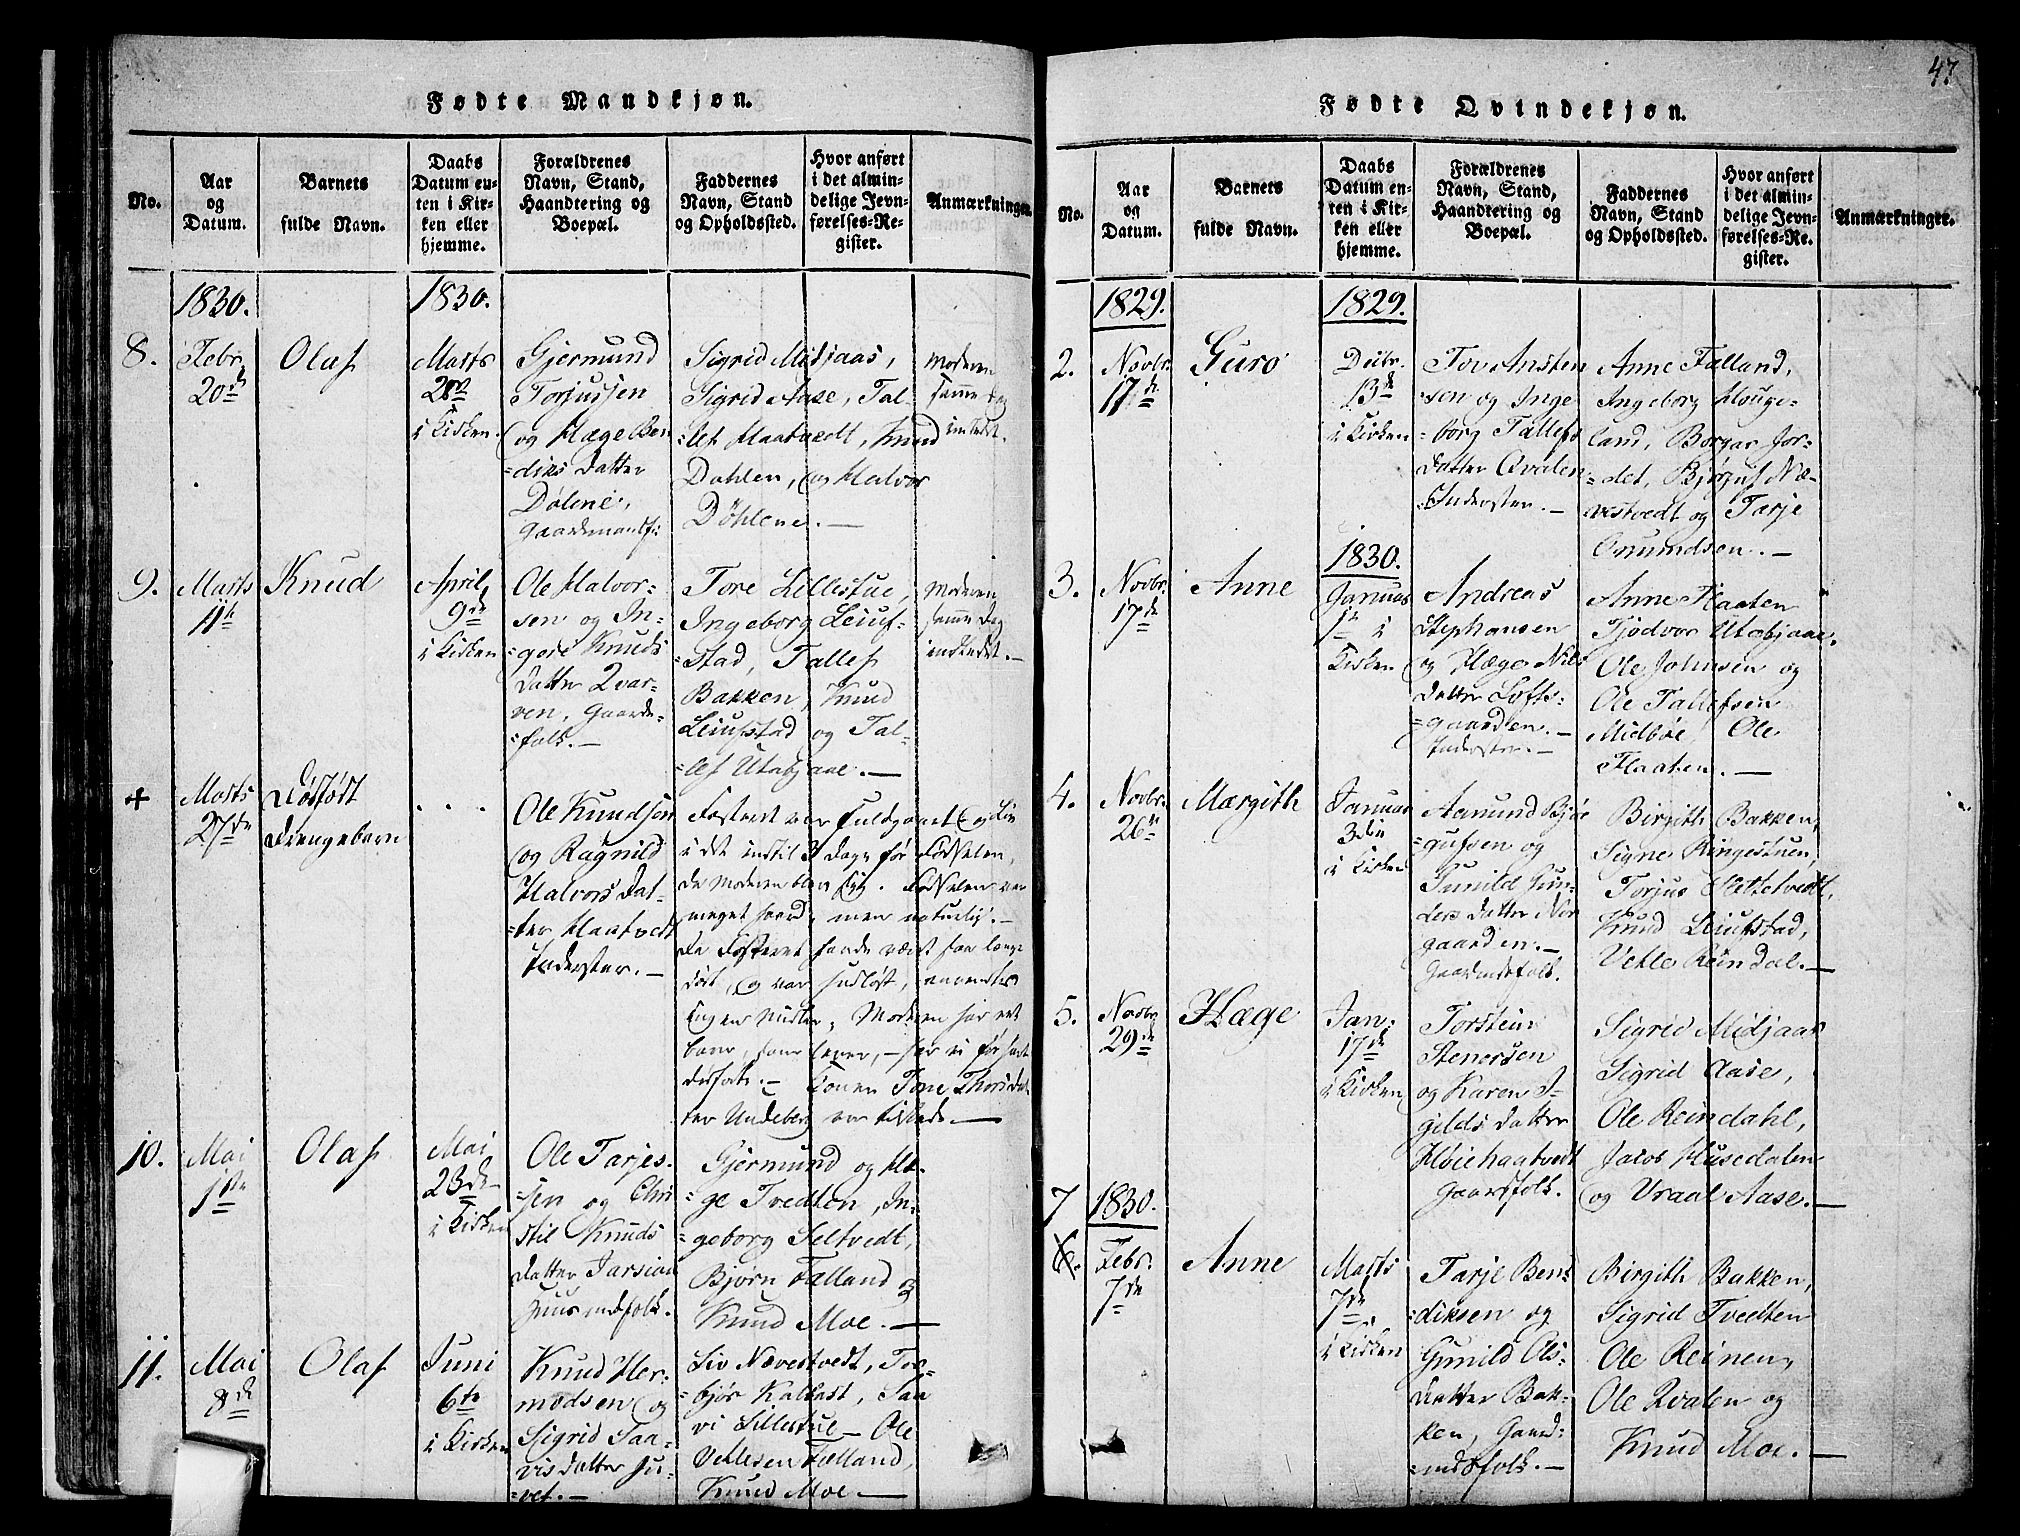 47
Fødte Mandkjøn.
No.
Aar
og
Datum.
Barnets
fulde Navn.
Daabs
Datum en-
ten i Kir-
ken eller
hjemme.
Forældrenes
Navn, Stand,
Haandtering og
Boepæl.
Faddernes
Navn, Stand
og Opholdssted.
Hvor anført
i det almin-
delige Jevn-
førelses-Re-
gister.
Anmærkninger.
1830.
1830.
8.
Febr.
20de
Olaf
Marts
i Kirken.
Gjermund
Torjussen
og Hæge Ben
=diks datter
Dølene,
Gaardmandsf:
Sigrid Midjaas,
Sigrid Aase, Tal-
=lef Haatvedt, Knud
Dahlen, og Halvor
Döhlene. —
Moderen
samme Dag
introd.
9.
Marts
11te
Knud
April
9de
i Kirken
Ole Halvor-
sen og In-
=gord Knuds
datter Qvar-
ven, Gaarde-
=folk. —
Tore Lillestue,
Ingeborg Leiuf-
=stad, Tallef
Bakken, Knud
Leiufstad og Tal-
=lef Utabjaae. —
Moderen
samme Dag
indledet. —
+
Marts
27de
Dødfødt
Drengebarn
. . .
Ole Knudsen
og Ragnild
Halvors Dat-
=ter Haatvedt
Inderster. —
Fosteret var fuldgaaet og Liv
i det indtil 3 Dage før Fødselen,
da Moderen blev syg. Fødselen var
meget haard, men naturlig. —
Da Fosteret havde været saa længe
død, og var hudløst, anvendtes
ingen Midler, Moderen har
=ter Undeberg var tilstede —
10.
Mai
1ste
Olaf
Mai
23de
i Kirken
Ole Tarjes-
=sen og Chri
stil Knuds
datter
Huusmdsfolk.
Gjermund og Hæ-
=ge Tvedten, In-
=geborg Seltvedt,
Bjørn Falland og
Knud Moe. —
11.
Mai
8de
Olaf
Juni
6te
i Kirken
Knud Her-
modsen og
Sigrid Taa-
vis datter Ju-
=vet. —
Liv Nævestvedt, Tor-
=björ Kallast, Taa
vi Lillestue — Ole
Vetlesen Falland,
Knud Moe. —
Fødte Qvindekjøn.
No.
Aar
og
Datum.
Barnets
fulde Navn.
Daabs
Datum en-
ten i Kir-
ken eller
hjemme.
Forældrenes
Navn, Stand,
Haandtering og
Boepæl.
Faddernes
Navn, Stand
og Opholdssted.
Hvor anført
i det almin-
delige Jevn-
førelses-Re-
gister.
Anmærkninger.
1829.
1829.
2.
Novbr.
17de
Guro
Decbr.
13de
i Kirken
Tov Ansten
=sen og Inge
=borg Tallefs
datter Qvalen
Inderster. —
Anne Falland,
Ingeborg Houge-
land, Borgar Jor-
=det, Bjørjuf Næ-
vestvedt og Tarje
Omundsen. —
3.
Novbr.
17de
Anne
1830.
Januar
1ste i
Kirken
Andreas
Stephansen
og Hæge Nils
datter Lofts-
=gaarden. —
Inderster. —
Anne Flaaten
Tjodvor Utabjaae,
Ole Johnsen og
Ole Tallefsen
Midböe, Ole
Flaaten. —
4.
Novbr.
26de
Margith
Januar
3die
i Kirken
Aamund Bjør
gufsen og
Gunild Gun-
ders datter Nor
gaarden. —
Gaardmdsfolk.
Birgith Bakken,
Signe Ringestuen,
Torjus Slettetvedt,
Knud Leiufstad,
Vetle Reindal. —
5.
Novbr.
29de
Hæge
Jan:
17de
i Kirken
Torstein
Stenersen
og Karen I-
gilds datter
Høiehaatvedt
Gaardsfolk.
Sigrid Midjaas
Sigrid Aase,
Ole Reindahl,
Jacob Husedalen
og Vraal Aase. —
7
1830.
6.
Febr.
7de
Anne
Marts
7de
i Kirken
Tarje Ben
=diksen og
Gunild Ols-
=datter Bak-
ken, Gaard-
=mdsfolk. —
Birgith Bakken,
Sigrid Tvedten
Ole Reinen,
Ole Qvalen og
Knud Moe. —